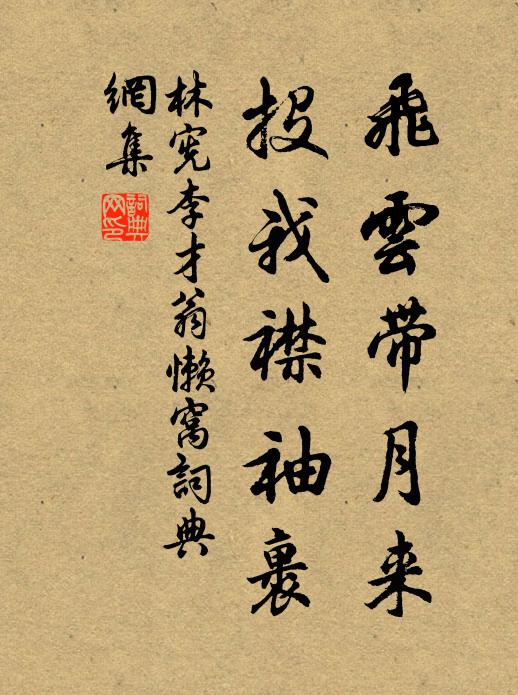 飛雲帶月来
投我襟袖裏
林宪李才翁懒窝詞典
網集
詞典网印